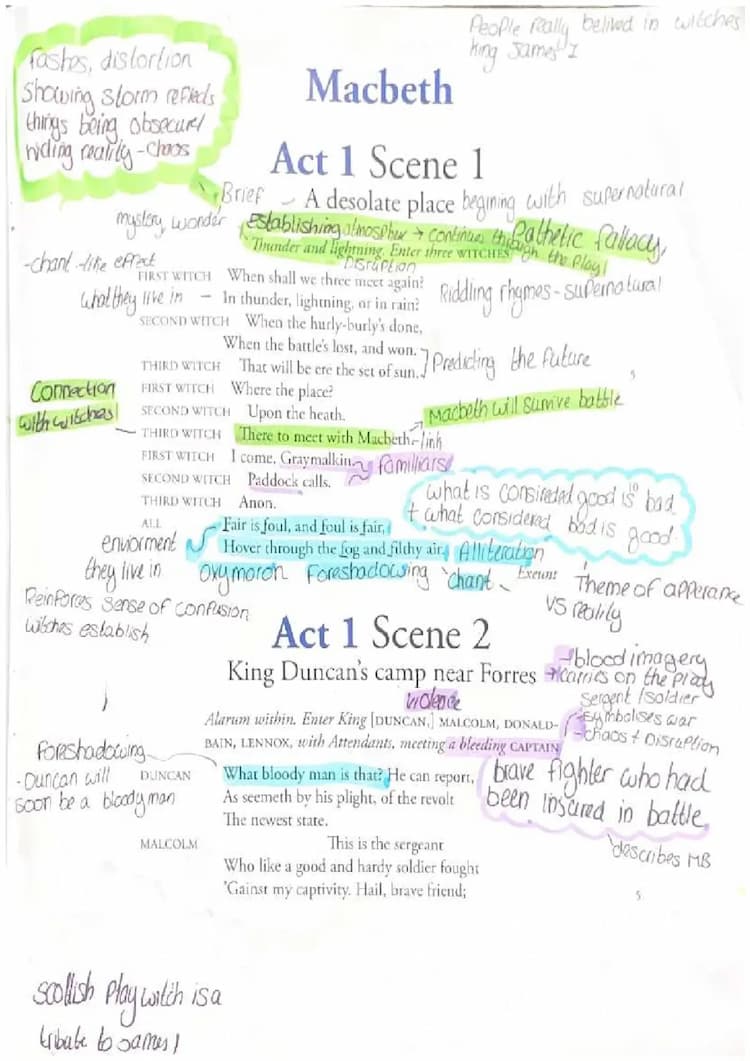 People really belived in witches
King James I
fashes, distortion
Showing storm reflects
things being obsecure/
hiding reality - chaos
Macbeth
Act 1 Scene 1
Brief - A desolate place begining with supernatural
mystery, wonder Establishing atmosphere → continues through the play/ Pathetic fallacy,
Thunder and lightning. Enter three WITCHES
Disruption
-chant-like effect
FIRST WITCH When shall we three meet again?
what they live in - In thunder, lightning, or in rain? Riddling rhymes - supernatural
SECOND WITCH When the hurly-burly's done,
When the battle's lost, and won.
THIRD WITCH That will be ere the set of sun. Predicting the future
Connection
with witches
FIRST WITCH Where the place?
SECOND WITCH Upon the heath. Macbeth will survive battle
THIRD WITCH There to meet with Macbeth. - link
FIRST WITCH I come, Graymalkin. familiars
SECOND WITCH Paddock calls.
THIRD WITCH Anon.
what is considered good is bad
+ what considered bad is good
ALL Fair is foul, and foul is fair,
Hover through the fog and filthy air. Alliteration
enviorment
they live in
oxymoron Foreshadowing 'chant Exeunt
Theme of apperance
vs reality
Reinforces sense of confusion
witches establish
Act 1 Scene 2
King Duncan's camp near Forres
→ blood imagery
→ carries on the play
sergent/soldier
- symbolises war
- chaos + Disruption
violence
Alarum within. Enter King [DUNCAN,] MALCOLM, DONALD-
BAIN, LENNOX, with Attendants, meeting a bleeding CAPTAIN
Foreshadowing
-Duncan will
soon be a bloody man
DUNCAN What bloody man is that? He can report,
As seemeth by his plight, of the revolt
The newest state.
brave fighter who had
been insured in battle
describes MB
MALCOLM This is the sergeant
Who like a good and hardy soldier fought
'Gainst my captivity. Hail, brave friend;
scollish Play witch is a
tribute to James I